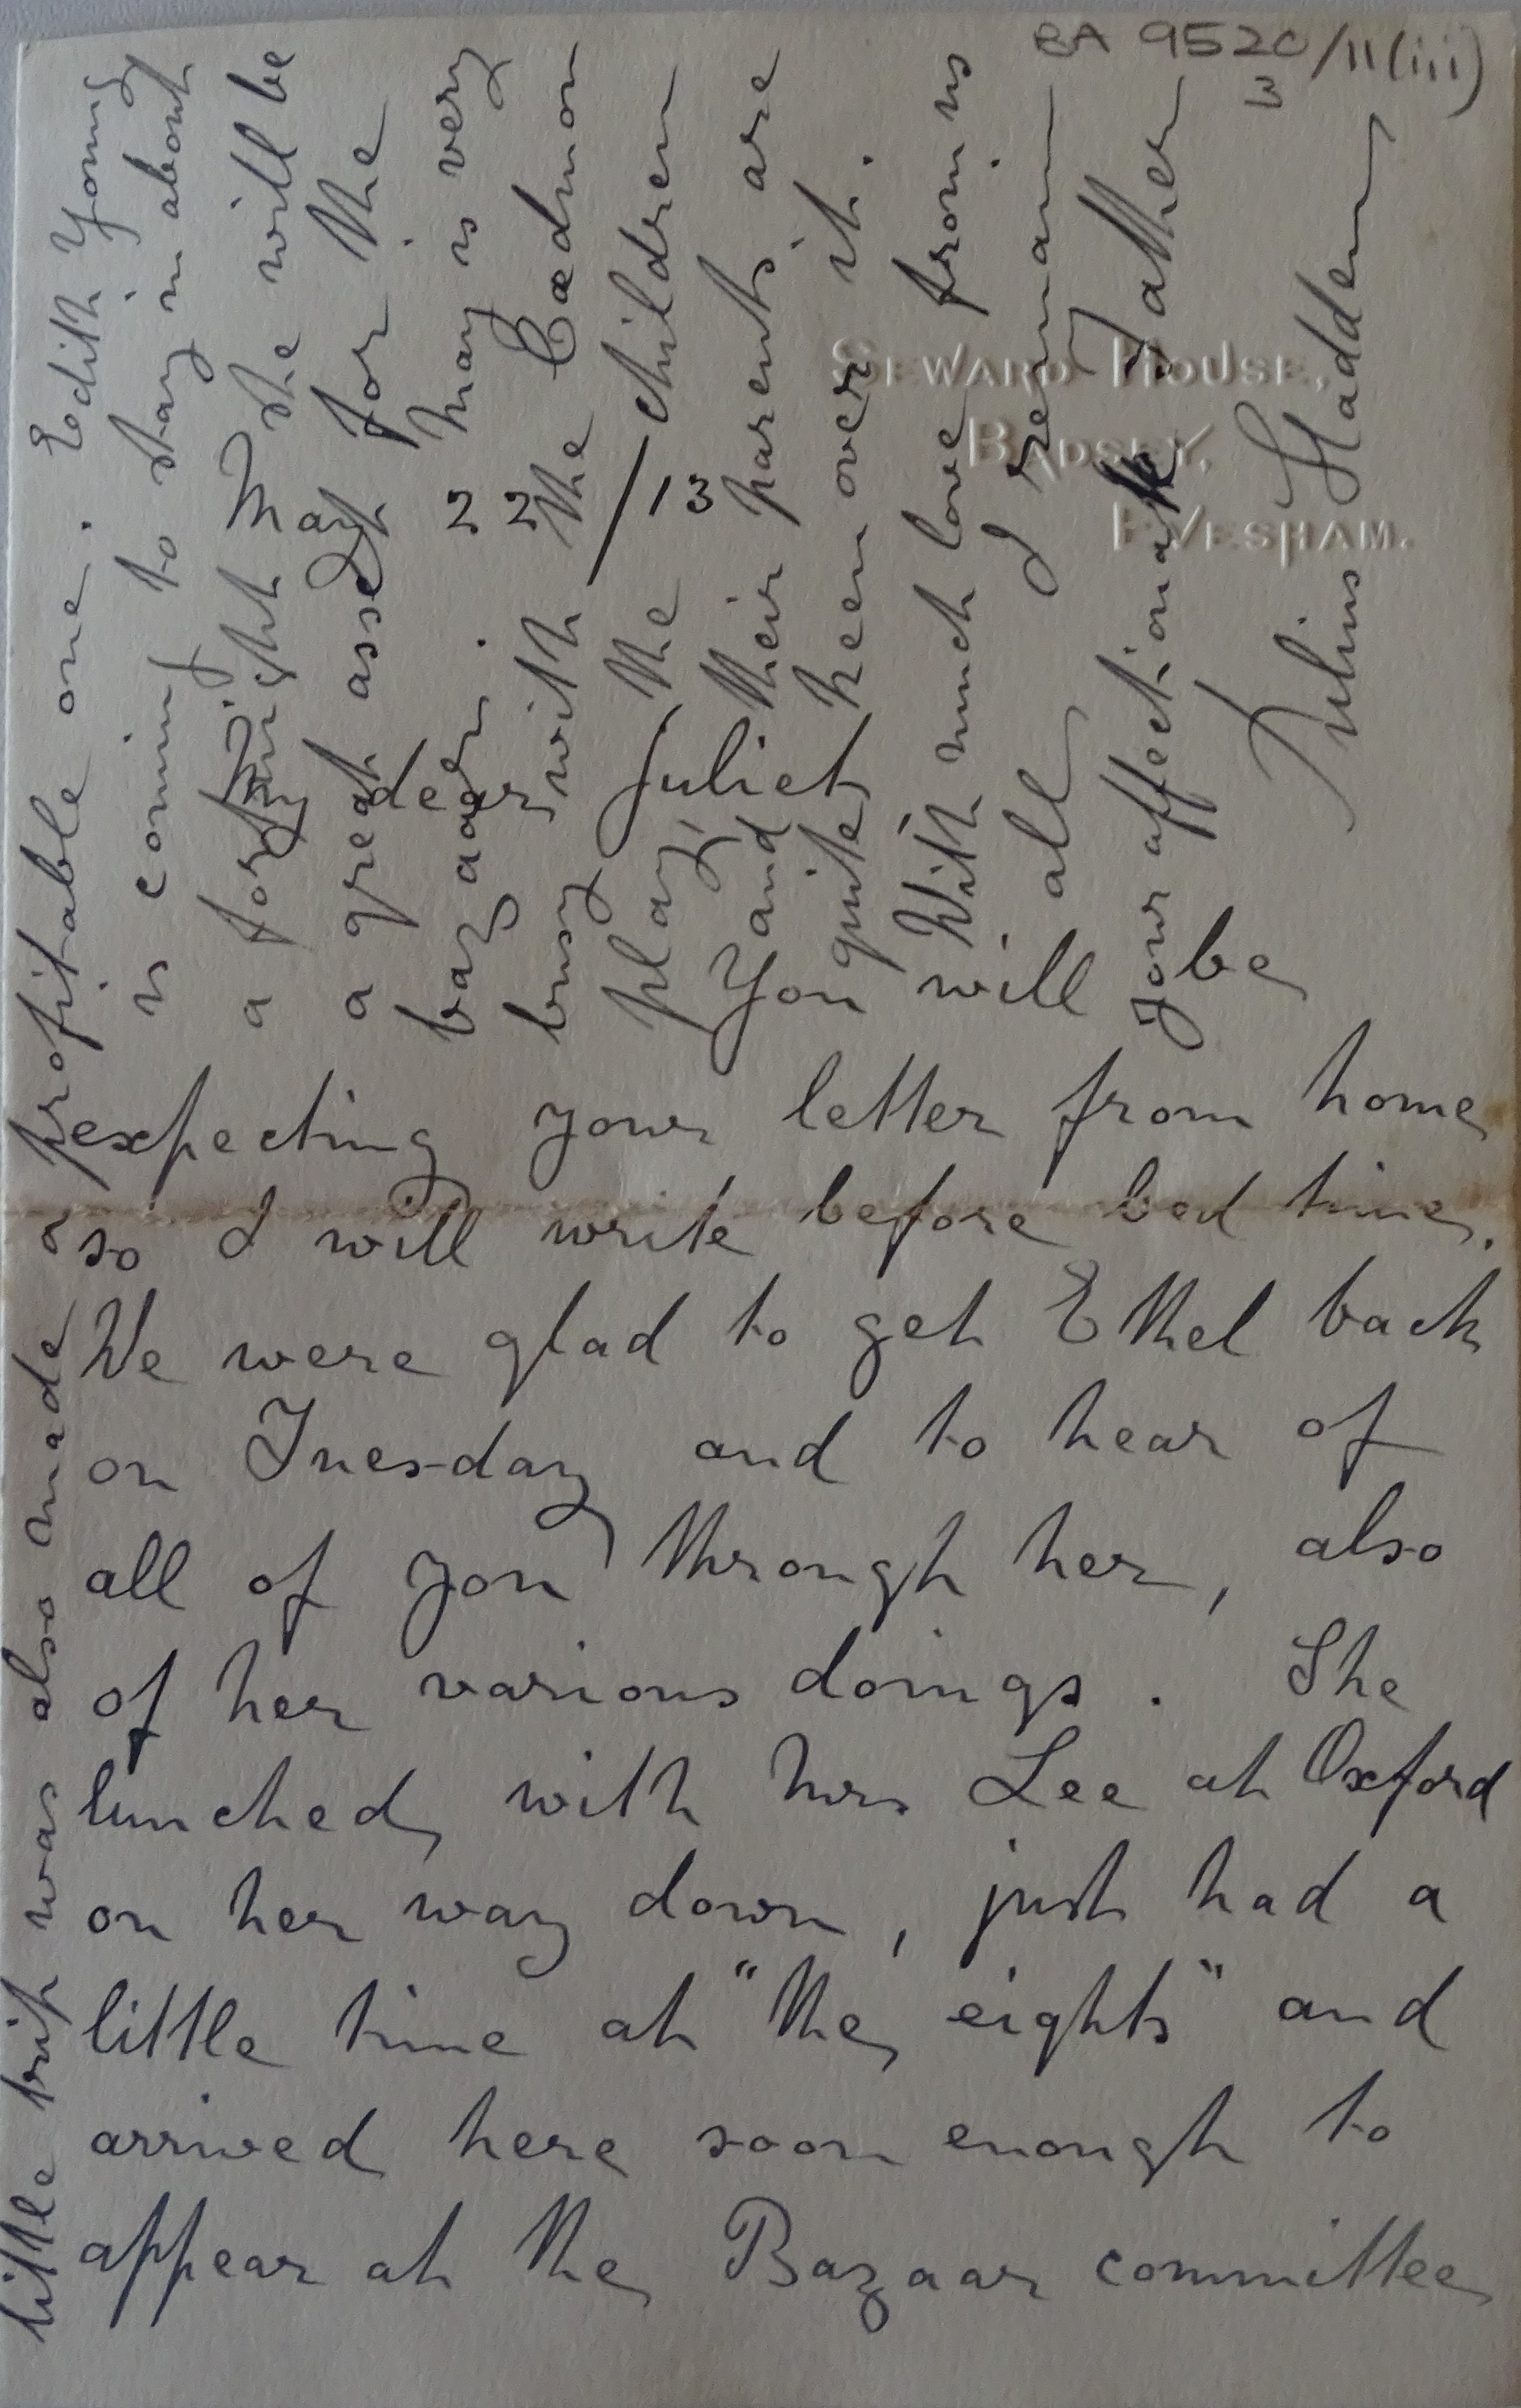 BA 9520/11(iii)
3
SEWARD HOUSE,
BADSEY,
EVESHAM.
May 22/13
My dear Juliet
You will be
expecting your letter from home
so I will write before bed time.
We were glad to get Ethel back
on Tuesday and to hear of
all of you through her, also
of her various doings. She
lunched with Mrs Lee at Oxford
on her way down, just had a
little time at "the eights" and
arrived here soon enough to
appear at the Bazaar committee
little trip was also made a profitable one. Edith Young
is coming to stay in about
a fortnight she will be
a great asset for the
bazaar. May is very
busy with the Cædmon
play, the children
and their parents are
quite keen over it.
With much love from us
all I remain
your affectionate Father
Julius Sladden